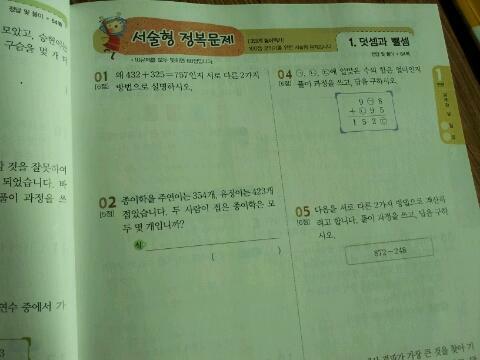 정답 및 풀이 • 54쪽
모았고, 승현이는
구슬을 몇 개
것을 잘못하여
되었습니다. 바
풀이 과정을 쓰
연수 중에서 가
서술형 정복문제
1. 덧셈과 뺄셈
정답 및 풀이 • 54쪽
01 왜 432+325=757인지 서로 다른 2가지
[6점] 방법으로 설명하시오.
02 종이학을 주연이는 354개, 유정이는 423개
[5점] 접었습니다. 두 사람이 접은 종이학은 모
두 몇 개입니까?
식
( )
04 ㉠, ㉡, ㉢에 알맞은 수의 합은 얼마인지
[6점] 풀이 과정을 쓰고, 답을 구하시오.
9 ㉠ 8
+ ㉡ 9 5
1 5 2 ㉢
05 다음을 서로 다른 2가지 방법으로 계산하
[6점] 려고 합니다. 풀이 과정을 쓰고, 답을 구하
시오.
872-248
결과가 가장 큰 것을 찾아 기
1